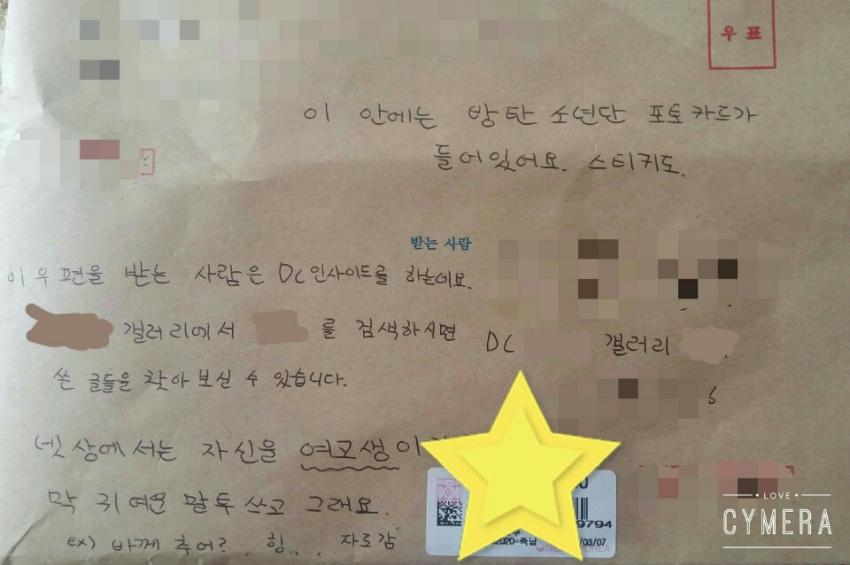 우표
이 안에는 방탄소년단 포토카드가
들어있어요. 스티커도.
받는 사람
이 우편을 받는 사람은 DC인사이트를 하는데요.
갤러리에서 를 검색하시면
DC 갤러리
쓴 글들을 찾아보실 수 있습니다.
넷상에서는 자신을 여고생이
막 귀여운 말투 쓰고 그래요.
ex) 바께 추어?, 힝..,
9794
/03/07
LOVE
CYMERA